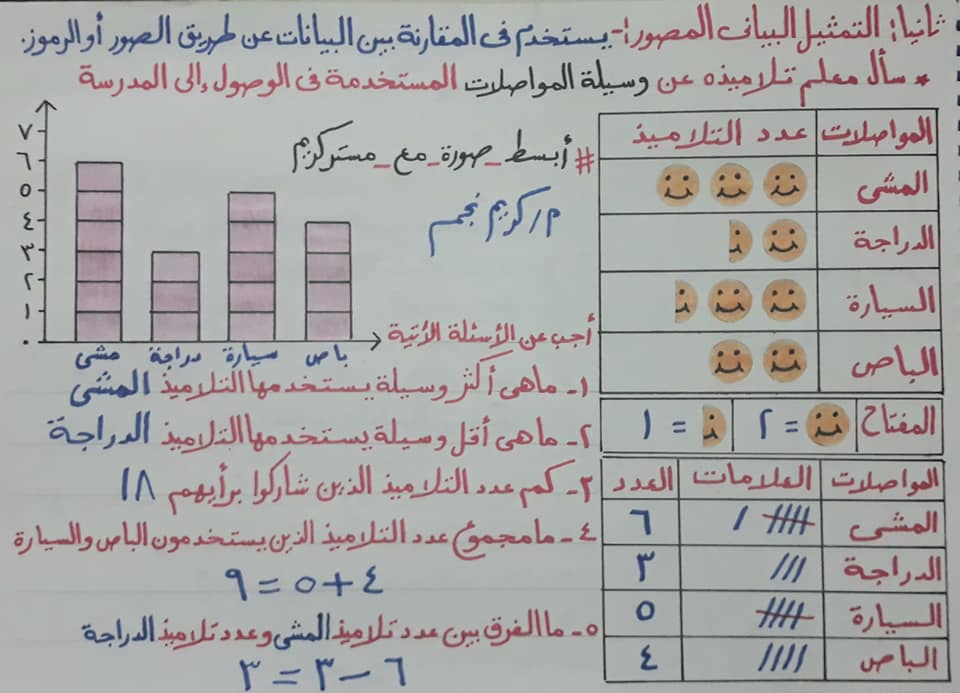 ثانيا: التمثيل البيانى المصور:- يستخدم فى المقارنة بين البيانات عن طريق الصور أو الرموز.
* سأل معلم تلاميذه عن وسيلة المواصلات المستخدمة فى الوصول إلى المدرسة
المواصلات عدد التلاميذ
المشى
الدراجة
السيارة
الباص
المفتاح = ٢ = ١
المواصلات العلامات العدد
المشى ٦
الدراجة ٣
السيارة ٥
الباص ٤
# أبسط_صورة_مع_مستر كريم
م/ كريم نجم
٧
٦
٥
٤
٣
٢
١
٠
مشى دراجة سيارة باص
أجب عن الأسئلة الأتية
١- ماهى أكثر وسيلة يستخدمها التلاميذ المشى
٢- ماهى أقل وسيلة يستخدمها التلاميذ الدراجة
٣- كم عدد التلاميذ الذين شاركوا برأيهم ١٨
٤- مامجموع عدد التلاميذ الذين يستخدمون الباص والسيارة
٤ + ٥ = ٩
٥- ماالفرق بين عدد تلاميذ المشى وعدد تلاميذ الدراجة
٦ - ٣ = ٣